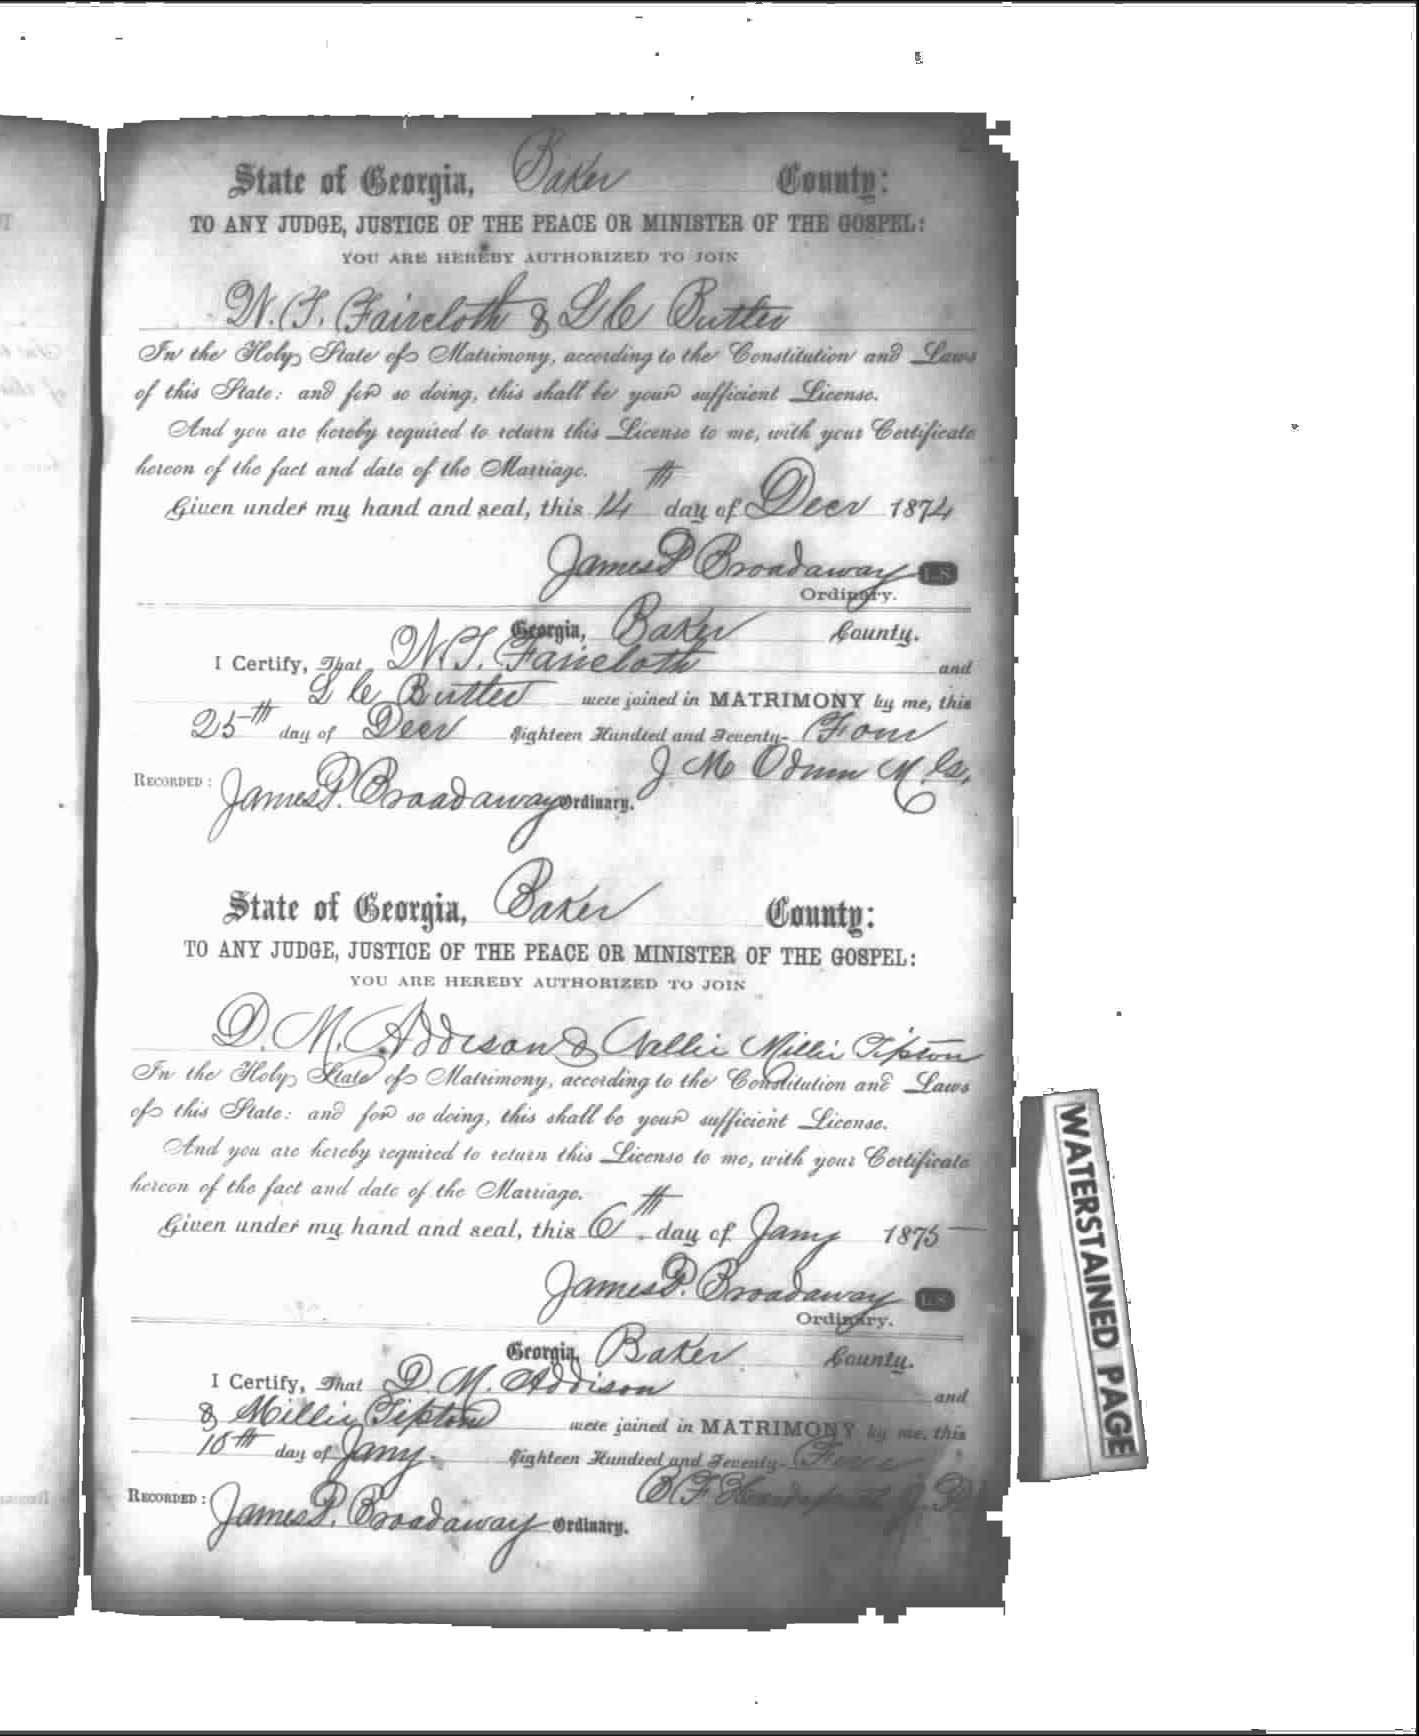 State of Georgia, Baker County:
TO ANY JUDGE, JUSTICE OF THE PEACE OR MINISTER OF THE GOSPEL:
YOU ARE HEREBY AUTHORIZED TO JOIN
W. T. Faircloth & L C Butler
In the Holy State of Matrimony, according to the Constitution and Laws
of this State: and for so doing, this shall be your sufficient License.
And you are hereby required to return this License to me, with your Certificate
hereon of the fact and date of the Marriage.
Given under my hand and seal, this 14th day of Decr 1874
James P Broadaway L.S.
Ordinary.
Georgia, Baker County.
I Certify, That W. T. Faircloth and
L C Butler were joined in MATRIMONY by me, this
25th day of Decr Eighteen Hundred and Seventy- Four
J. M Odum M. G.
RECORDED: James P. Broadaway Ordinary.
State of Georgia, Baker County:
TO ANY JUDGE, JUSTICE OF THE PEACE OR MINISTER OF THE GOSPEL:
YOU ARE HEREBY AUTHORIZED TO JOIN
D. M. Addison & Millie Tipton
In the Holy State of Matrimony, according to the Constitution and Laws
of this State: and for so doing, this shall be your sufficient License.
And you are hereby required to return this License to me, with your Certificate
hereon of the fact and date of the Marriage.
Given under my hand and seal, this 6th day of Jany 1875
James P. Broadaway L.S.
Ordinary.
Georgia, Baker County.
I Certify, That D. M. Addison and
& Millie Tipton were joined in MATRIMONY by me, this
10th day of Jany. Eighteen Hundred and Seventy- Five
B. F. J. P.
RECORDED: James P. Broadaway Ordinary.
WATERSTAINED PAGE